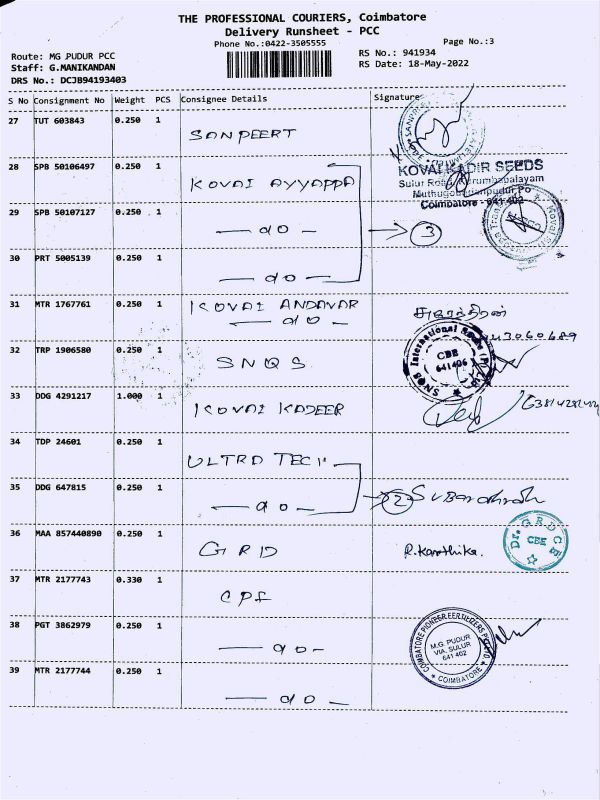 THE PROFESSIONAL COURIERS, Coimbatore
Delivery Runsheet - PCC
Phone No.:0422-3505555
Page No.:3
Route: MG PUDUR PCC
RS No.: 941934
Staff: G.MANIKANDAN
RS Date: 18-May-2022
DRS No.: DCJB94193403
S No Consignment No Weight PCS Consignee Details Signature
27 TUT 603843 0.250 1
SANPEERT
28 SPB 50106497 0.250 1
KOVAI AYYAPPA
KOVAI KADIR SEEDS
Sulur Road, Karumbapalayam
Muthugoundanpudur Po
Coimbatore - 641 402
29 SPB 50107127 0.250 1
— do —
3
30 PRT 5005139 0.250 1
— do —
31 MTR 1767761 0.250 1
KOVAI ANDAVAR
— do —
32 TRP 1906580 0.250 1
SNQS
SNQS International Socks (P) Ltd
CBE
641406
33 DDG 4291217 1.000 1
KOVAI KADEER
34 TDP 24601 0.250 1
ULTRA TECH
35 DDG 647815 0.250 1
— do —
2
36 MAA 857440890 0.250 1
GRD
R.Karthika.
Dr. GRDCE
CBE
37 MTR 2177743 0.330 1
CPF
38 PGT 3862979 0.250 1
— do —
COIMBATORE PIONEER FERTILIZERS PVT LTD
M.G. PUDUR
VIA. SULUR
641 402
COIMBATORE
39 MTR 2177744 0.250 1
— do —